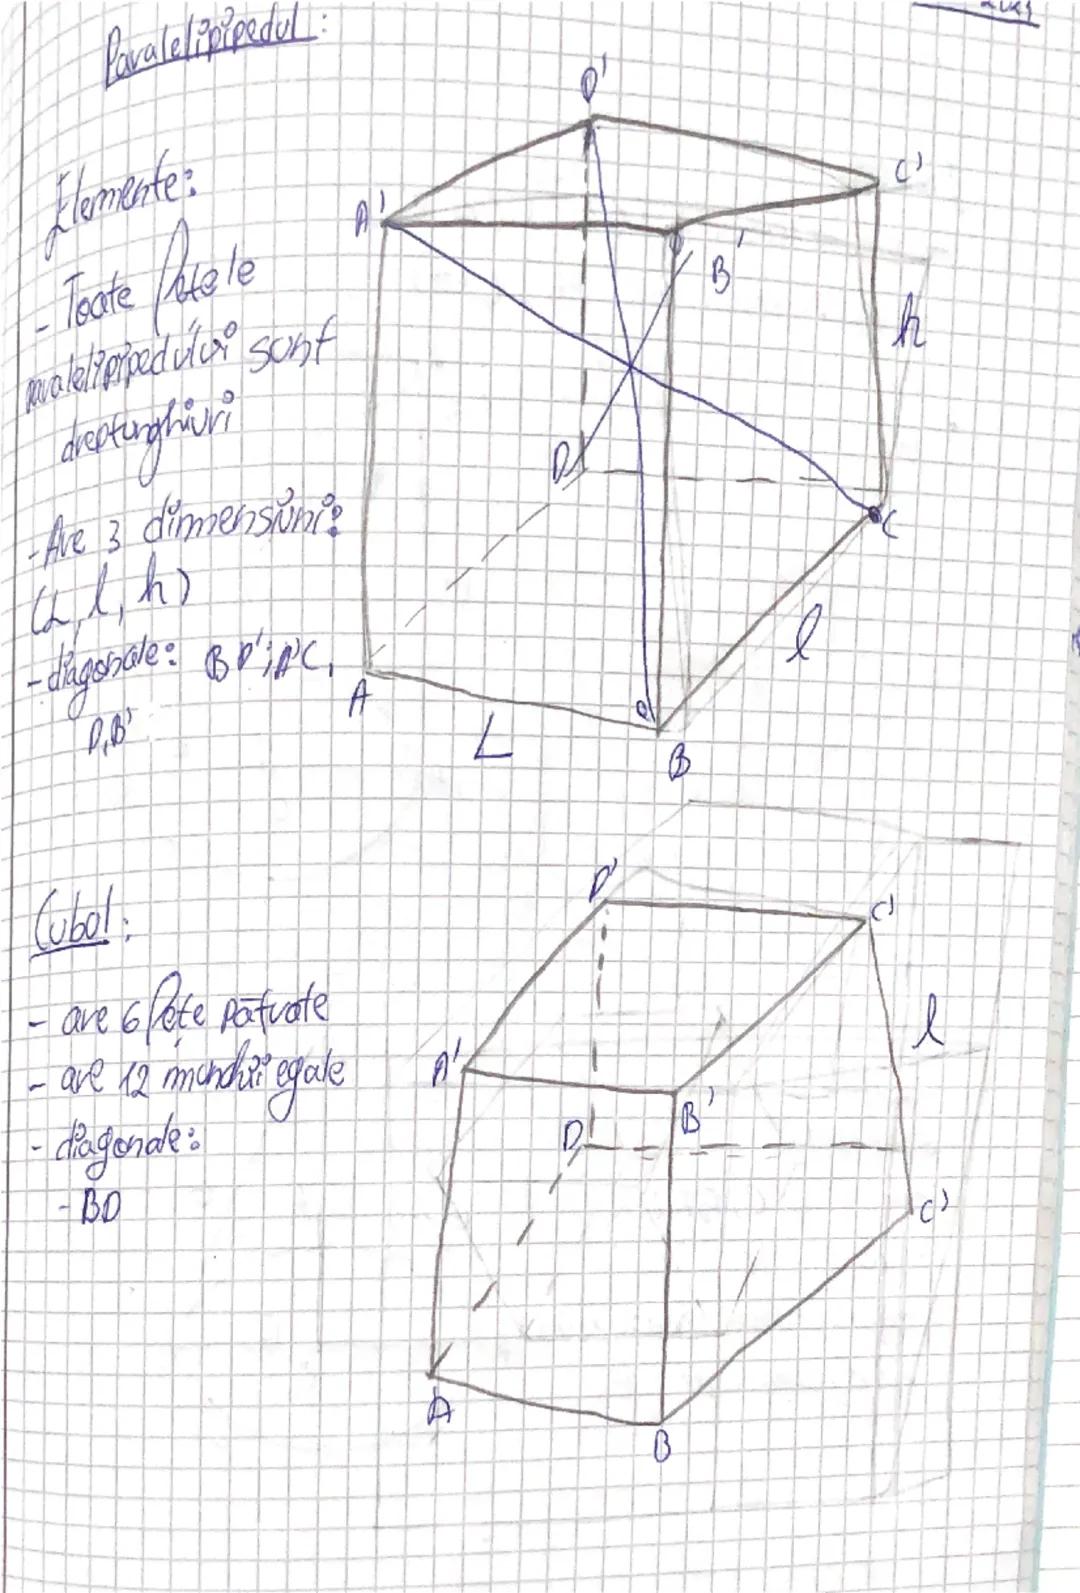 Paralelipipedul:
Elemente:
- Toate fețele
paralelipipedului sunt
dreptunghiuri
- Are 3 dimmensiuni:
(L, l, h)
- diagonale: BD'; A'C,
D,B'
D'
C'
A'
B'
h
D
C
l
A
L
B
Cubol:
- are 6 fețe pătrate
- are 12 munchii egale
- diagonale:
- BD
D'
C'
l
A'
B'
D
C'
A
B